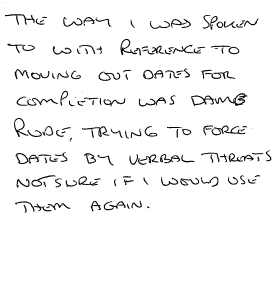 THE WAY I WAS SPOKEN
TO WITH REFERENCE TO
MOVING OUT DATES FOR
COMPLETION WAS DAMB
RUDE, TRYING TO FORCE
DATES BY VERBAL THREATS
NOT SURE IF I WOULD USE
THEM AGAIN.